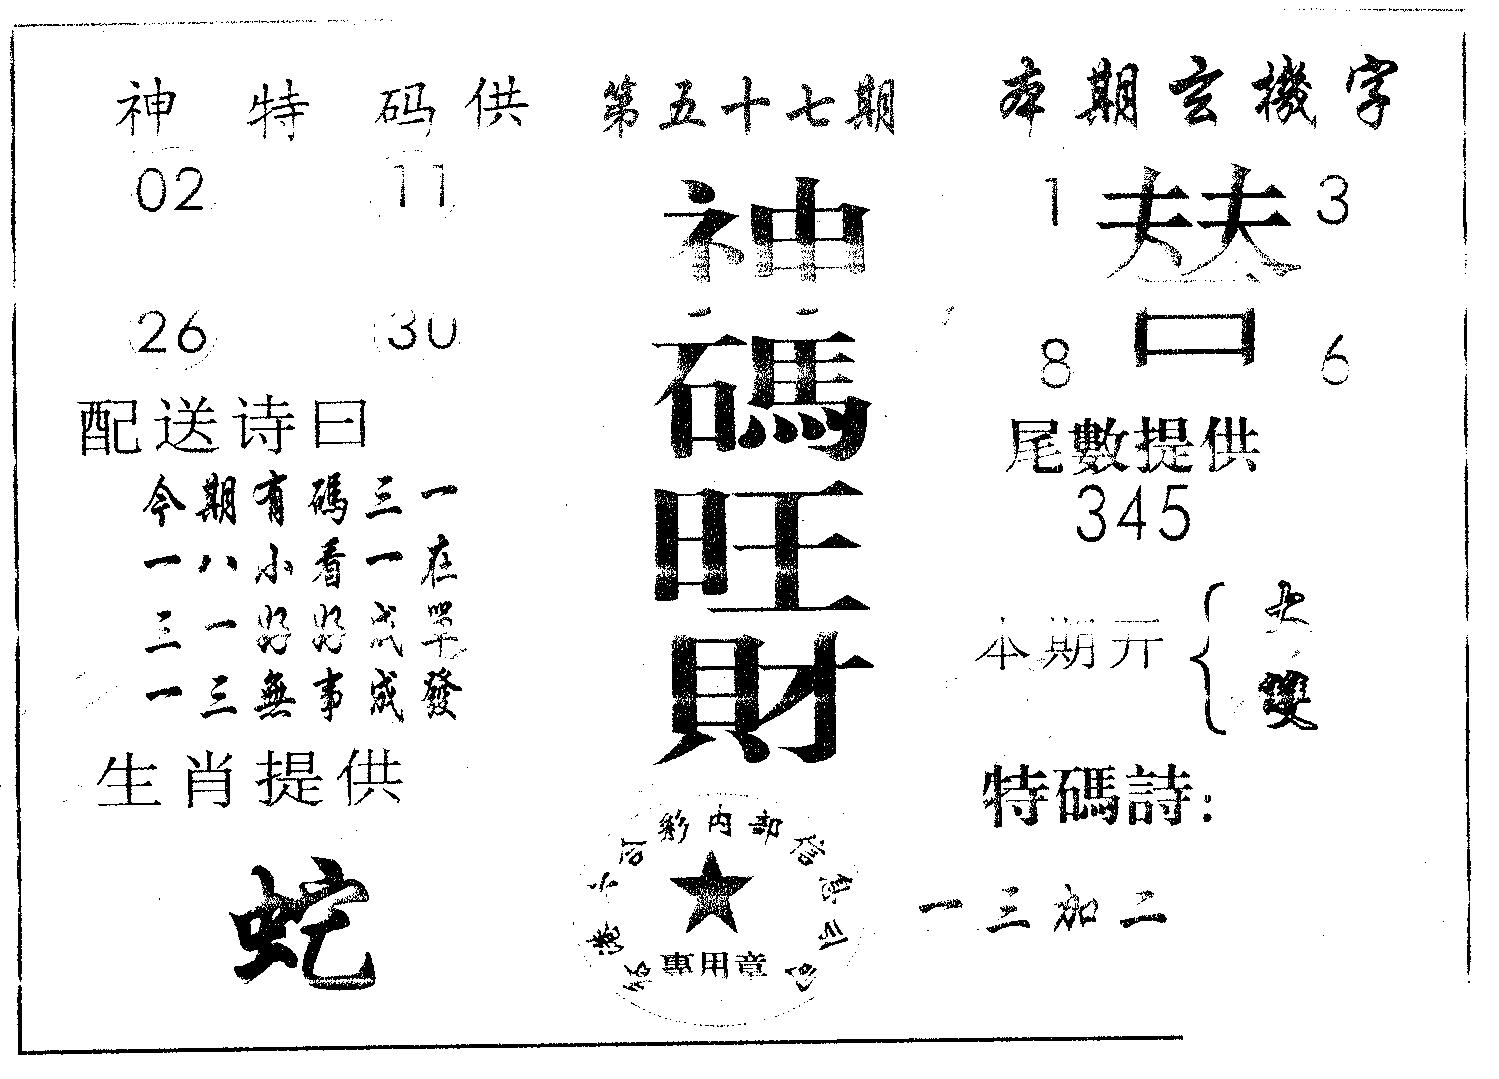 神特码供
02 11
26 30
配送诗曰
今期有碼三一
一八小看一在
三一好好成單
一三無事成發
生肖提供
蛇
第五十七期
神
碼
旺
財
香港六合彩內部信息公司的
專用章
本期玄機字
1 替 3
8 6
尾數提供
345
本期开{大
雙
特碼詩:
一三加二